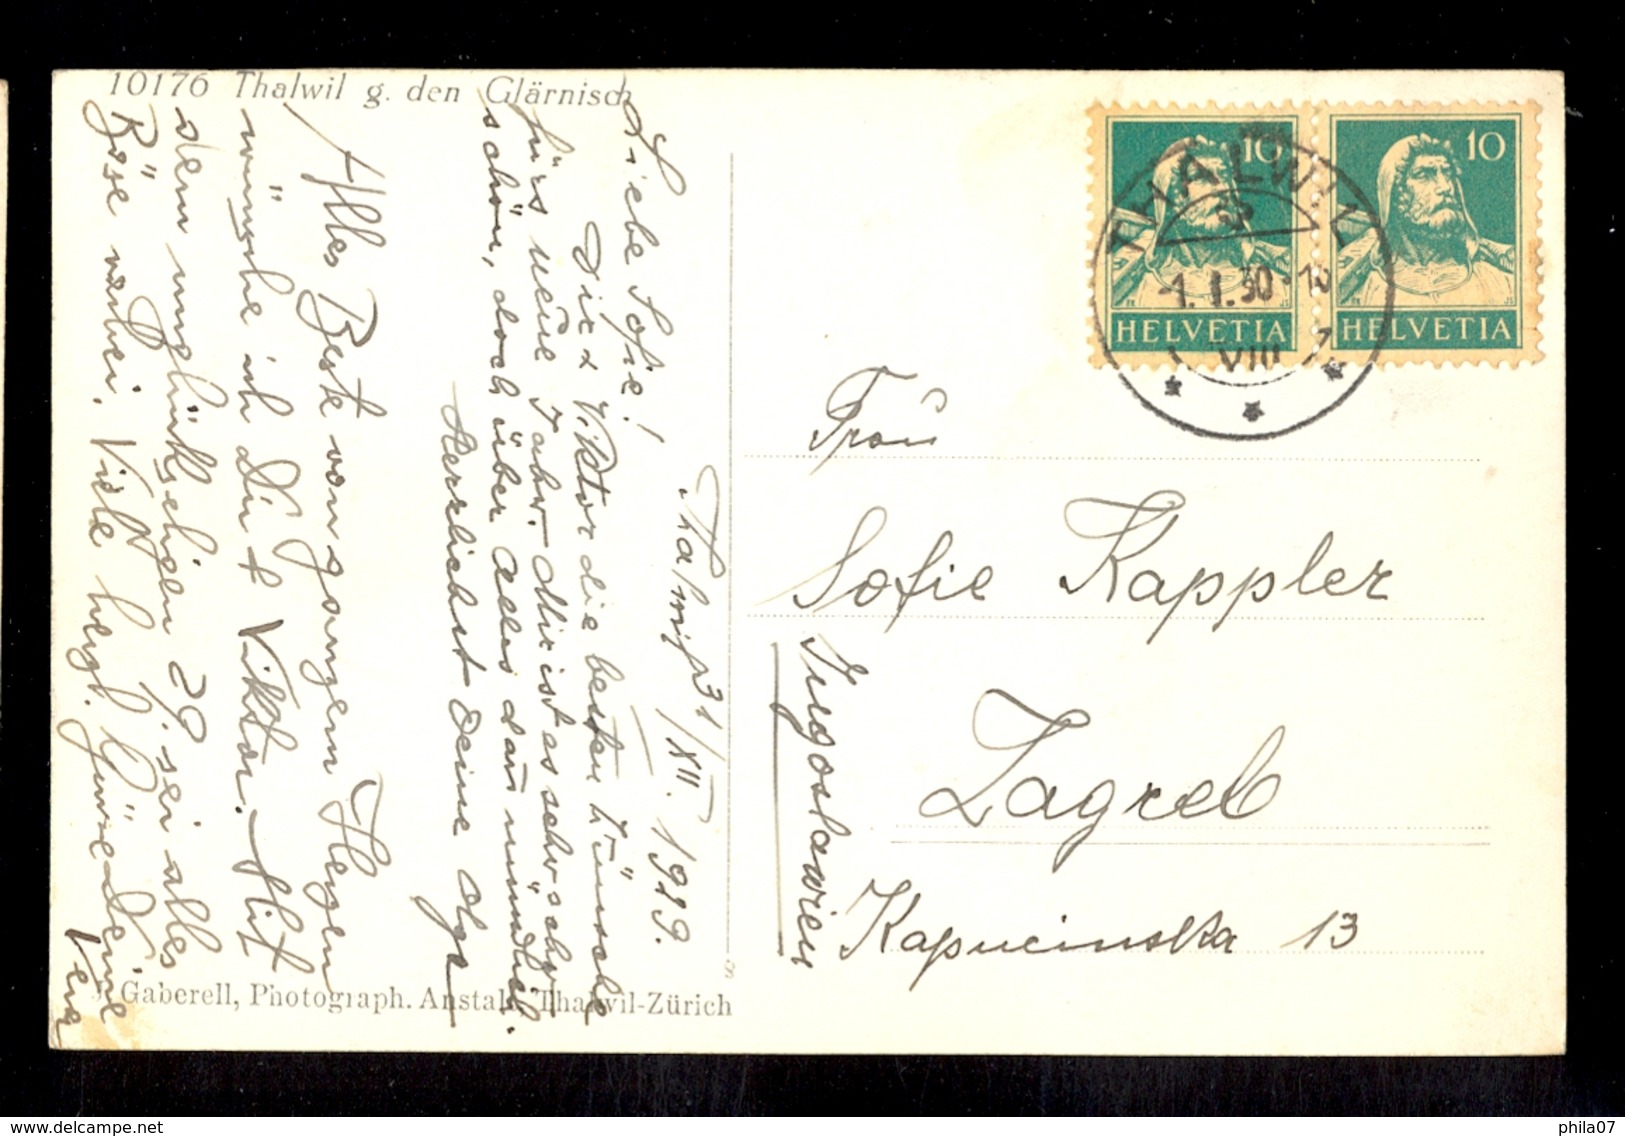 10176 Thalwil g. den Glärnisch
Thalwil, 31/XII. 1929.
Liebe Sofie!
Dir & Viktor die besten Wünsche
fürs neue Jahr. Mir ist es sehr, sehr
schön, doch über Alles dann mündlich.
Herzlichst Deine Olga
Alles Beste von ganzem Herzen
wünsche ich Dir & Viktor. Mit
dem unglückseligen 29. sei alles
Böse vorbei. Viele herzl. Grüsse Deine
Vera
J. Gaberell, Photograph. Anstalt, Thalwil-Zürich
10 10
HELVETIA HELVETIA
THALWIL
-1. I. 30-12
VIII
Frau
Sofie Kappler
Zagreb
Kapucinska 13
Jugoslawien
phila07